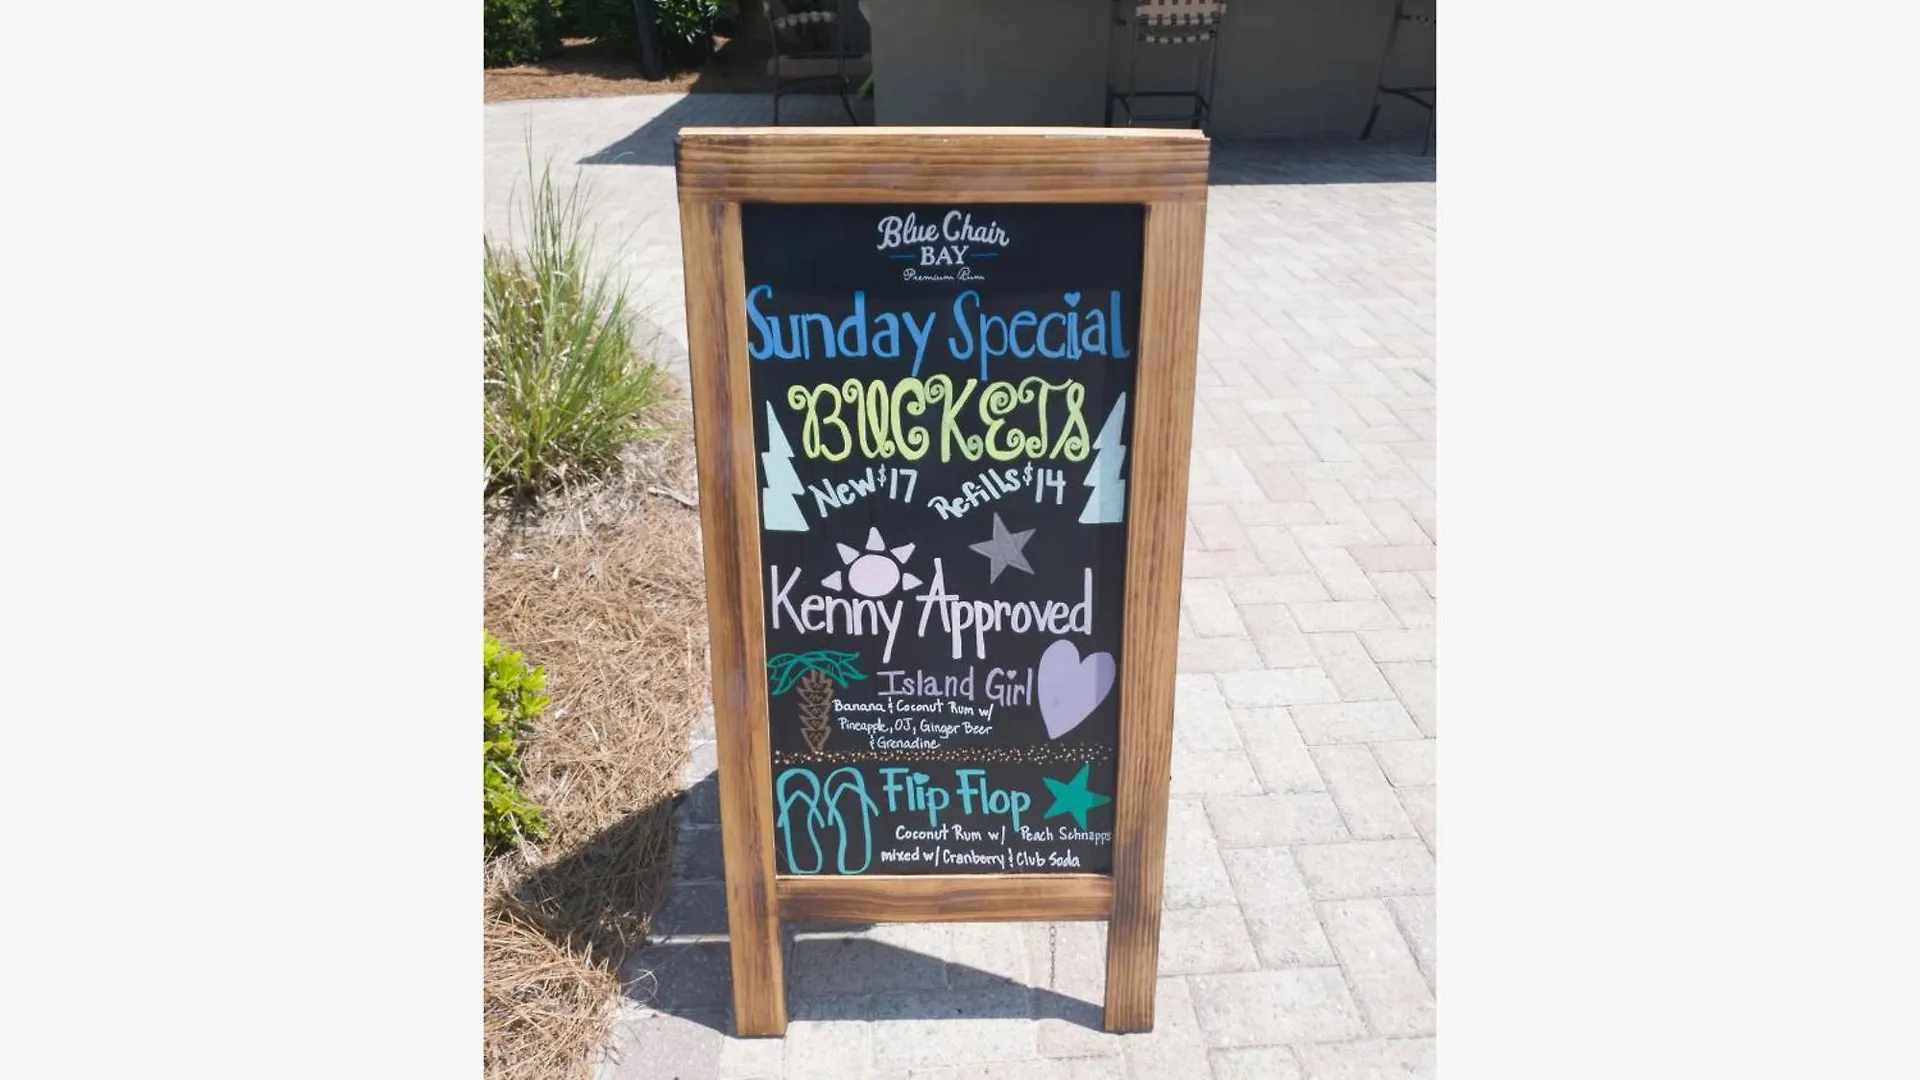 Blue Chair
BAY
Premium Rum
Sunday Special
BUCKETS
New $17 Refills $14
Kenny Approved
Island Girl
Banana & Coconut Rum w/
Pineapple, OJ, Ginger Beer
& Grenadine
Flip Flop
Coconut Rum w/ Peach Schnapps
mixed w/ Cranberry & Club Soda